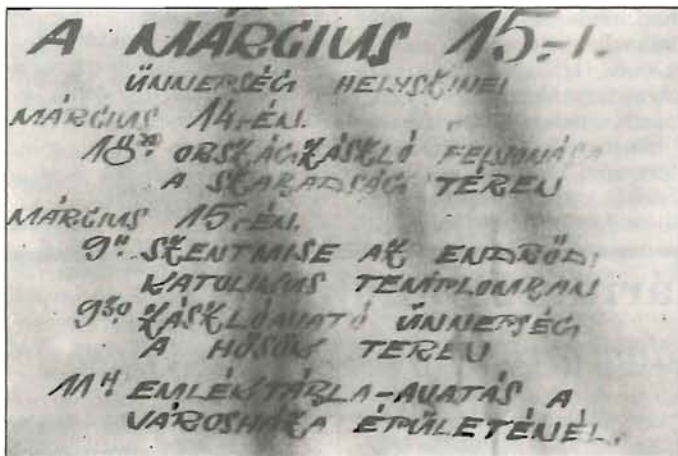 A MÁRCIUS 15.-I.
ÜNNEPSÉG HELYSZÍNEI
MÁRCIUS 14.-ÉN.
ORSZÁGZÁSZLÓ FELVONÁSA
A SZABADSÁG TÉREN
MÁRCIUS 15.-ÉN.
9H SZENTMISE AZ ENDRŐDI
KATOLIKUS TEMPLOMBAN
9 30 ZÁSZLÓAVATÓ ÜNNEPSÉG
A HŐSÖK TERÉN
11H EMLÉKTÁBLA-AVATÁS A
VÁROSHÁZA ÉPÜLETÉNÉL.